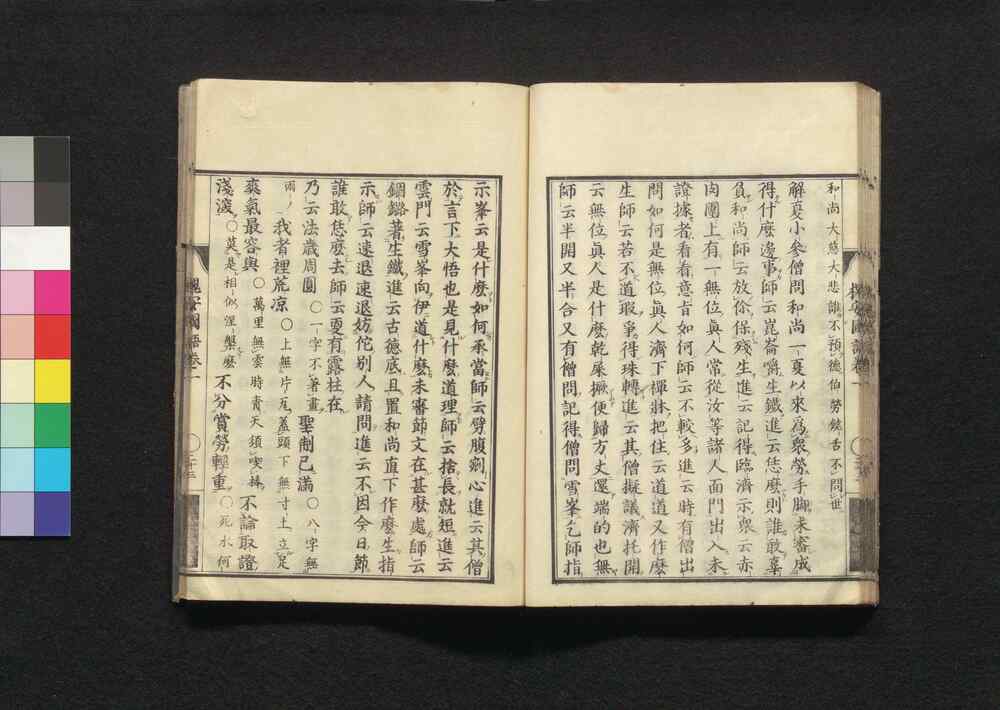 和尚大慈大悲誰不預德伯勞鋴舌不問世
解夏小參僧問和尚一夏以來爲衆勞手脚未審成
得什麼邊事師云崑崙嚼生鐵進云恁麼則誰敢辜
負和尚師云放你保殘生進云記得臨濟示衆云赤
肉團上有一無位眞人常從汝等諸人面門出入未
證據者看看意旨如何師云不較多進云時有僧出
問如何是無位眞人濟下禪牀把住云道道又作麼
生師云若不道瑕爭得珠轉進云其僧擬議濟托開
云無位眞人是什麼乾屎橛便歸方丈還端的也無
師云半開又半合又有僧問記得僧問雪峯乞師指
示峯云是什麼如何承當師云劈腹剜心進云其僧
於言下大悟也是見什麼道理師云捨長就短進云
雲門云雪峯向伊道什麼未審節文在甚麼處師云
錮鏴著生鐵進云古德底且置和尚直下作麼生指
示師云速退速退妨佗別人請問進云不因今日節
誰敢恁麼去師云更有露柱在
乃云法歲周圓 〇一字不著畫 聖制已滿 〇八字無
兩丿 我者裡荒凉 〇上無片瓦蓋頭下無寸土立足
爽氣最容與 〇萬里無雲時青天須喫棒 不論取證
淺深 〇莫是相似涅槃麼 不分賞勞輕重 〇死水何
槐安國語卷一